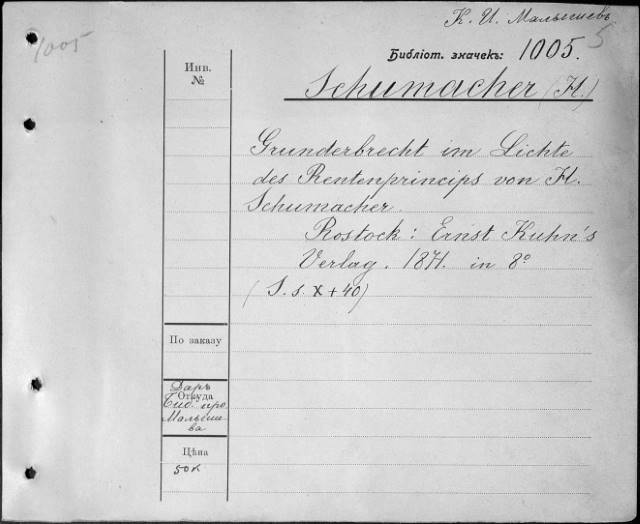 К. И. Малышевъ
1005
5
Библіот. значекъ: 1005.
Инв.
№
Schumacher (H.)
Grunderbrecht im Lichte
des Rentenprincips von H.
Schumacher.
Rostock: Ernst Kuhn's
Verlag. 1871. in 8°
(S. s. X + 40)
По заказу
Даръ
Откуда
Библ. про
Малыше
ва
Цѣна
50 к